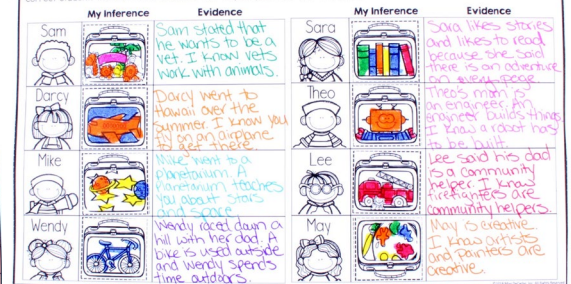 My Inference Evidence
Sam
Sam stated that
he wants to be a
vet. I know vets
work with animals.
Darcy
Darcy went to
Hawaii over the
summer. I know you
go on an airplane
to get there
Mike
Mike went to a
planetarium. A
Planetarium teaches
you about stars
and space
Wendy
Wendy raced down a
hill with her dad. A
bike is used outside
and Wendy spends
time outdoors.
My Inference Evidence
Sara
Sara likes stories
and likes to read
because she said
there is an adventure
on every page
Theo
Theo's mom is
an engineer. An
engineer builds things
I know a robot has
to be built.
Lee
Lee said his dad
is a community
helper. I know
firefighters are
community helpers.
May
May is creative.
I know artists
and painters are
creative.